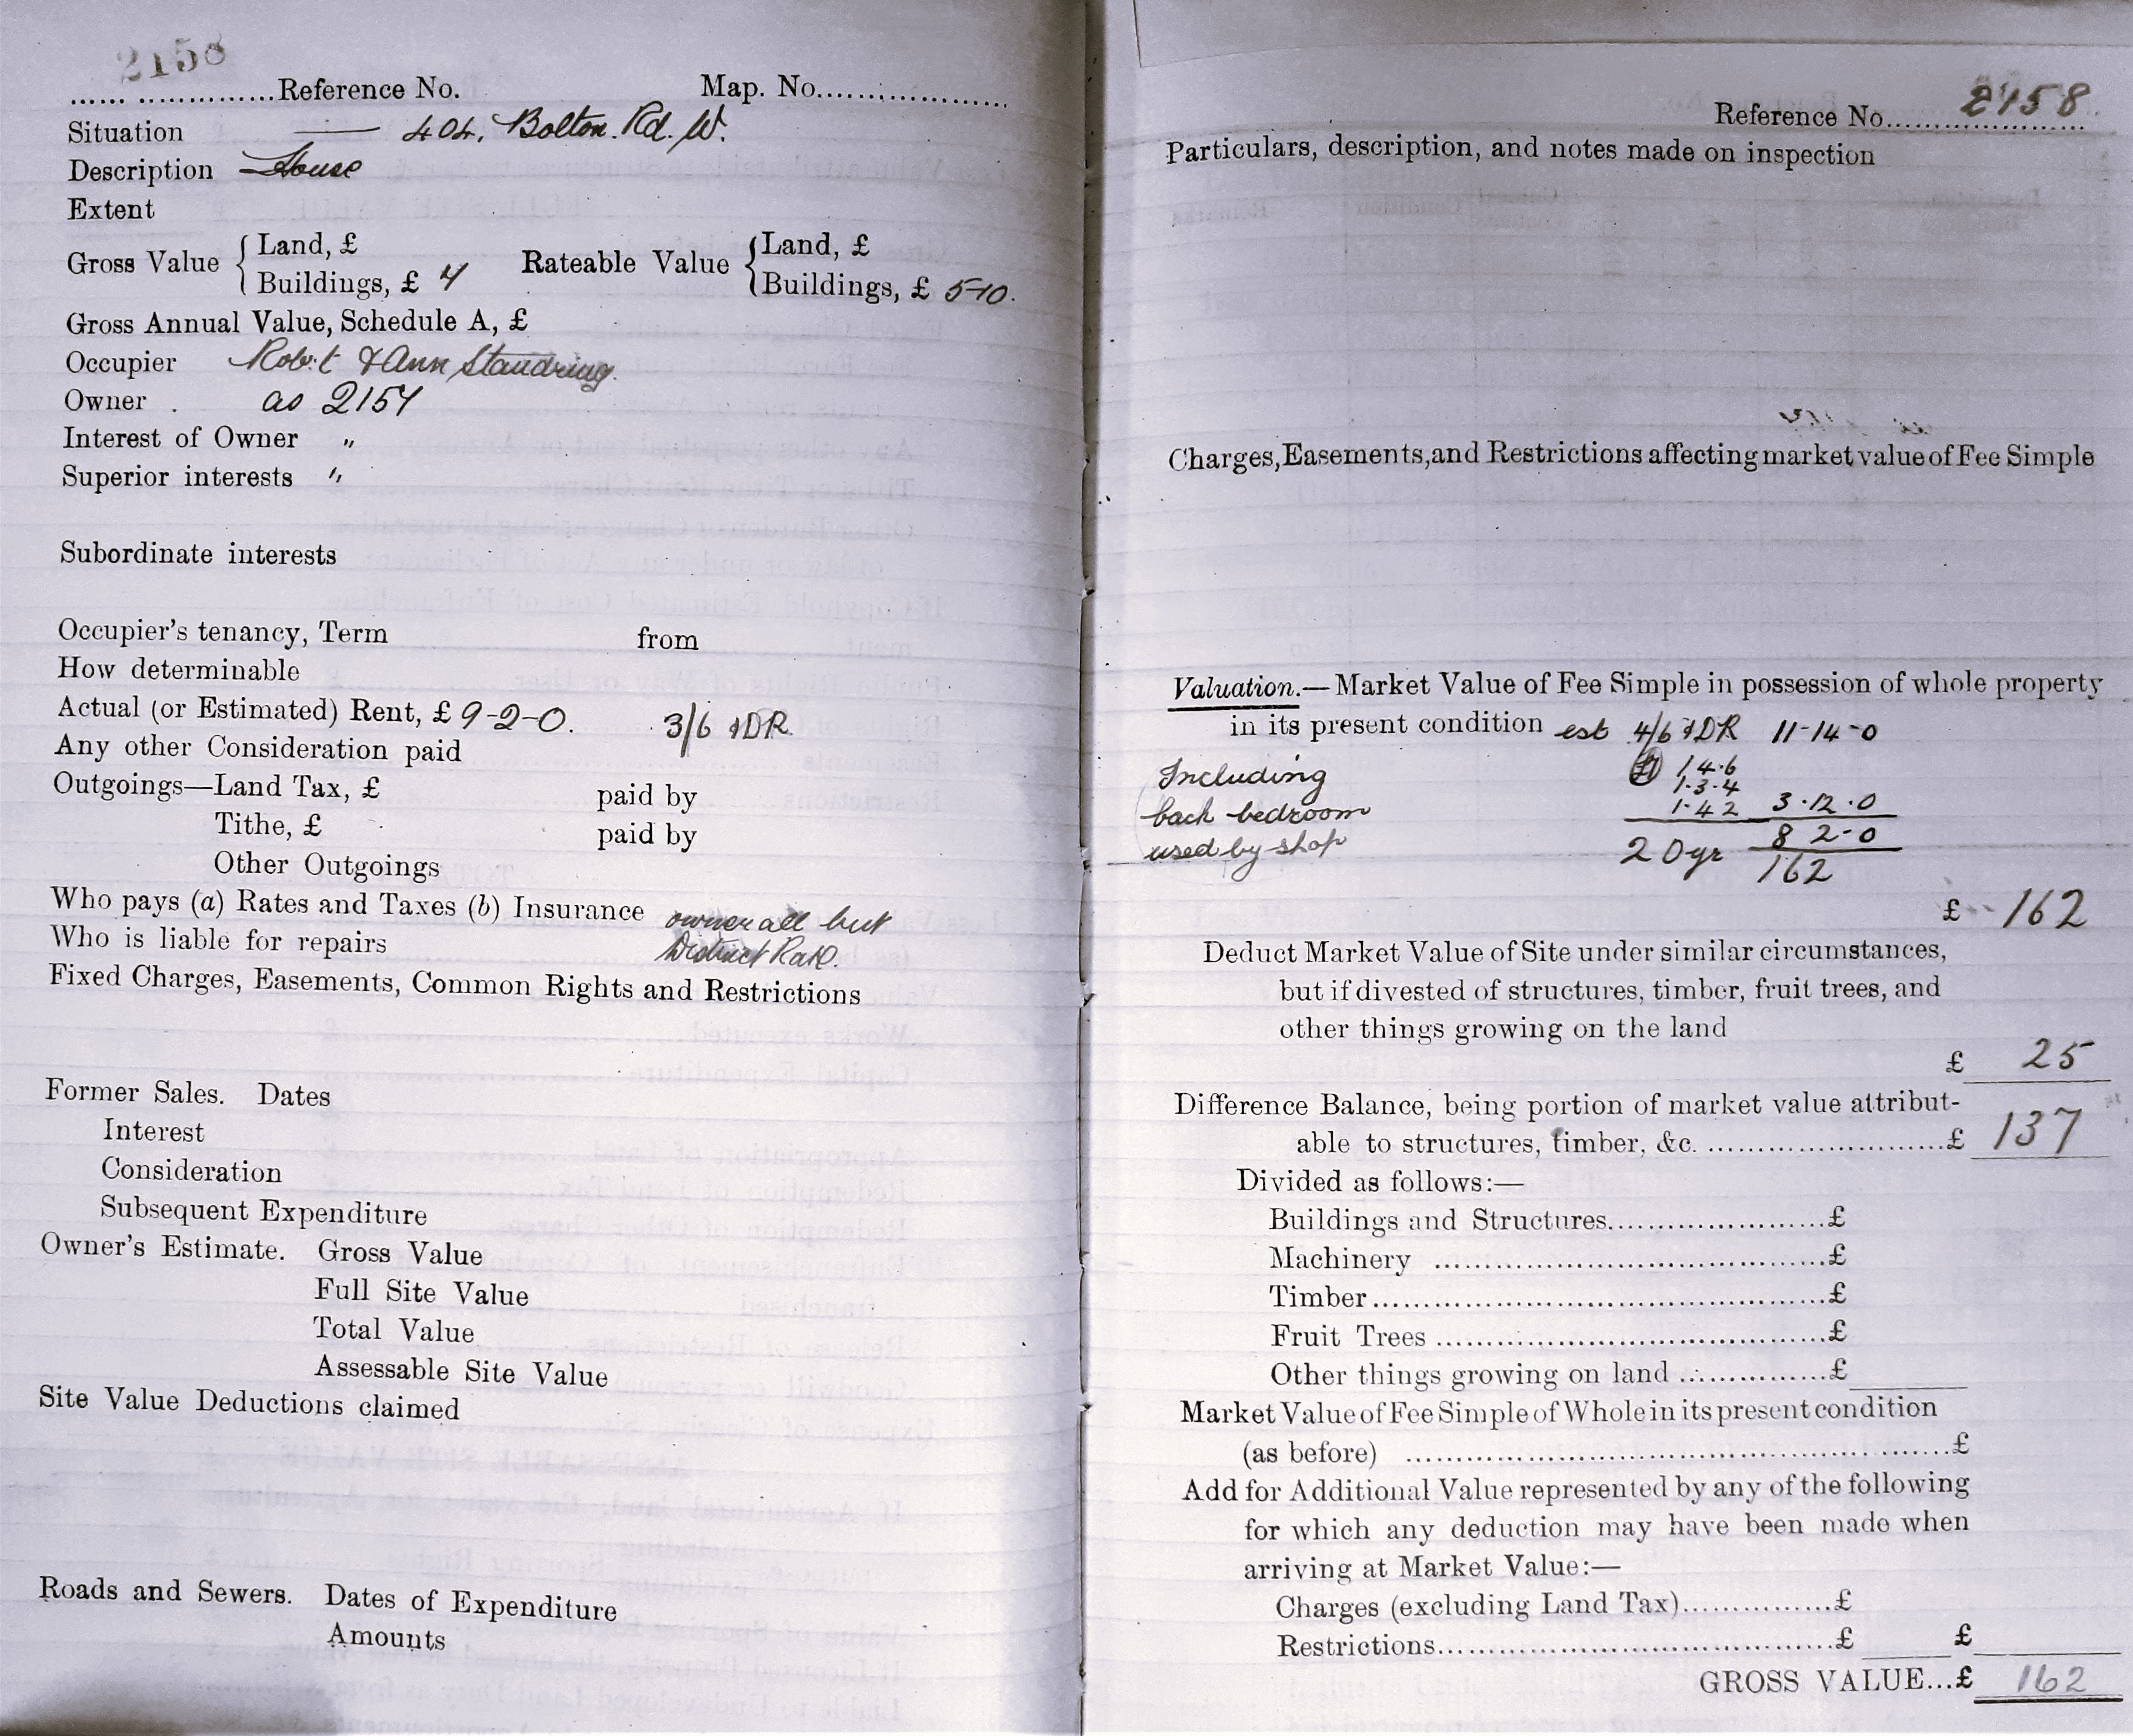 2158
Reference No. Map. No.
Situation — 404, Bolton. Rd. W.
Description House
Extent
Gross Value { Land, £ Rateable Value { Land, £
Buildings, £ 4 Buildings, £ 5-10.
Gross Annual Value, Schedule A, £
Occupier Rob:t & Ann Standring
Owner . as 2157
Interest of Owner "
Superior interests "
Subordinate interests
Occupier's tenancy, Term from
How determinable
Actual (or Estimated) Rent, £ 9-2-0. 3/6 & DR.
Any other Consideration paid
Outgoings—Land Tax, £ paid by
Tithe, £ paid by
Other Outgoings
Who pays (a) Rates and Taxes (b) Insurance owner all but
Who is liable for repairs District Rate.
Fixed Charges, Easements, Common Rights and Restrictions
Former Sales. Dates
Interest
Consideration
Subsequent Expenditure
Owner's Estimate. Gross Value
Full Site Value
Total Value
Assessable Site Value
Site Value Deductions claimed
Roads and Sewers. Dates of Expenditure
Amounts
Reference No. 2158
Particulars, description, and notes made on inspection
Charges, Easements, and Restrictions affecting market value of Fee Simple
Valuation.—Market Value of Fee Simple in possession of whole property
in its present condition est 4/6 & DR 11-14-0
Including 14.6
1.3.4
back bedroom 1.42 3.12.0
used by shop 8 2-0
20yr 162
£ 162
Deduct Market Value of Site under similar circumstances,
but if divested of structures, timber, fruit trees, and
other things growing on the land
£ 25
Difference Balance, being portion of market value attribut-
able to structures, timber, &c. £ 137
Divided as follows:—
Buildings and Structures £
Machinery £
Timber £
Fruit Trees £
Other things growing on land £
Market Value of Fee Simple of Whole in its present condition
(as before) £
Add for Additional Value represented by any of the following
for which any deduction may have been made when
arriving at Market Value:—
Charges (excluding Land Tax) £
Restrictions £ £
GROSS VALUE...£ 162